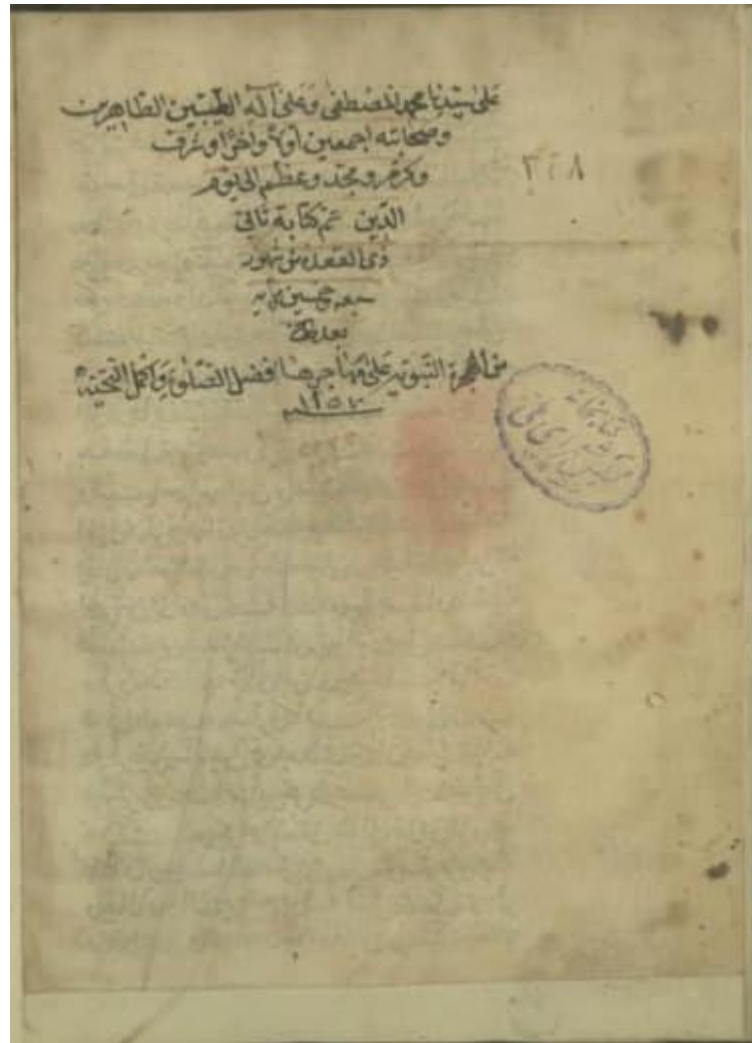 على سيدنا محمد المصطفى وعلى آله الطيبين الطاهرين
وصحابته اجمعين أولا وآخرا وشرف
وكرم ومجد وعظم الى يوم
٣٢٨
الدين تم كتابة ثاني
ذي القعدة من شهور
سبعه خمسين مايه
بعد
من الهجرة النبوية على مهاجرها افضل الصلوة واكمل التحية
كتابخانه
مجلس شورای ملی